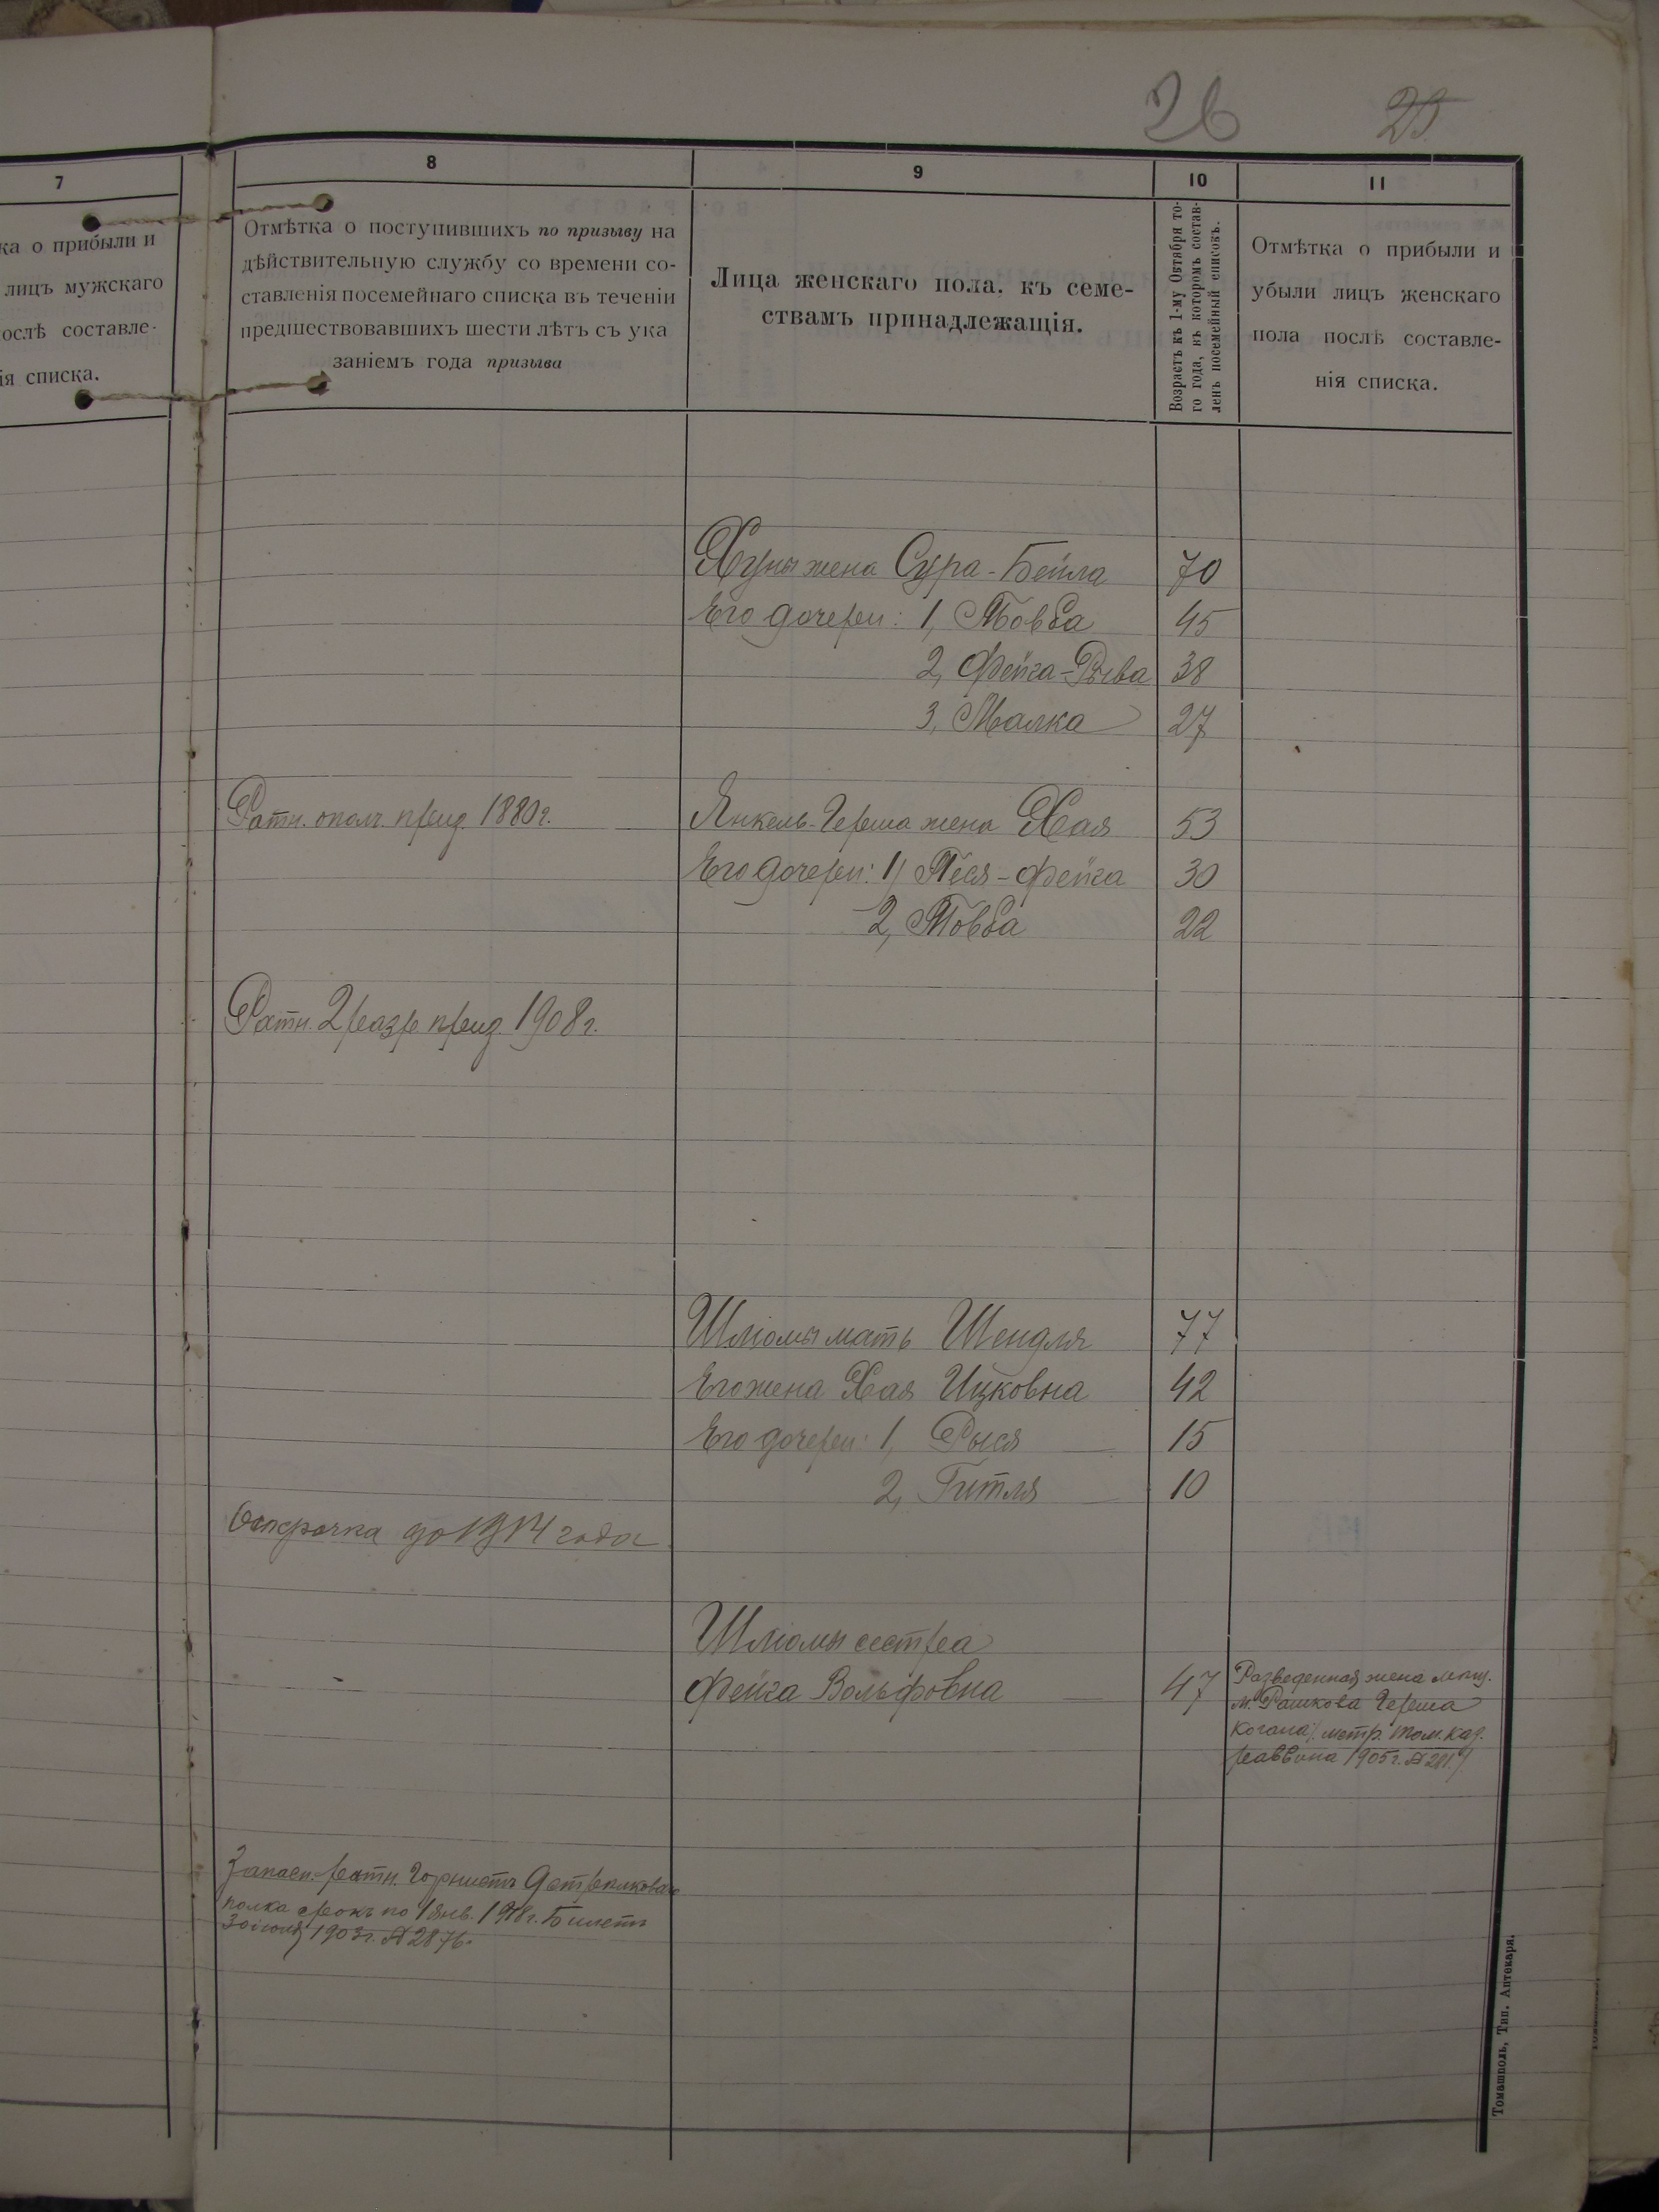 26 25
7
ка о прибыли и
лицъ мужскаго
ослѣ составле-
ія списка.
8
Отмѣтка о поступившихъ по призыву на
дѣйствительную службу со времени со-
ставленія посемейнаго списка въ теченіи
предшествовавшихъ шести лѣтъ съ ука
заніемъ года призыва
9
Лица женскаго пола, къ семе-
ствамъ принадлежащія.
10
Возрастъ къ 1-му Октября то-
го года, въ которомъ состав-
ленъ посемейный списокъ.
11
Отмѣтка о прибыли и
убыли лицъ женскаго
пола послѣ составле-
нія списка.
Хуны жена Сура-Бейла 70
Его дочери: 1, Товба 45
2, Фейга-Рыва 38
3, Малка 27
Ратн. ополч. приз. 1880 г. Янкель-Герша жена Хая 53
Его дочери: 1, Песя-Фейга 30
2, Товба 22
Ратн. 2 разр приз. 1908 г.
Шліомы мать Шендля 77
Его жена Хая Ицковна 42
Его дочери: 1, Рыся 15
2, Гитля 10
Отсрочка до 1914 года
Шліомы сестра
Фейга Вольфовна 47
Разведенная жена мѣщ.
м. Рашкова Герша
Когана (метр. Том. каз.
раввина 1905 г. №
Запасн. ратн. Горнистъ 9 стрѣлковаго
полка срокъ по 1 янв. г. Билетъ
30 іюля 1903 г. № 2876.
Томашполь, Тип. Аптекаря.